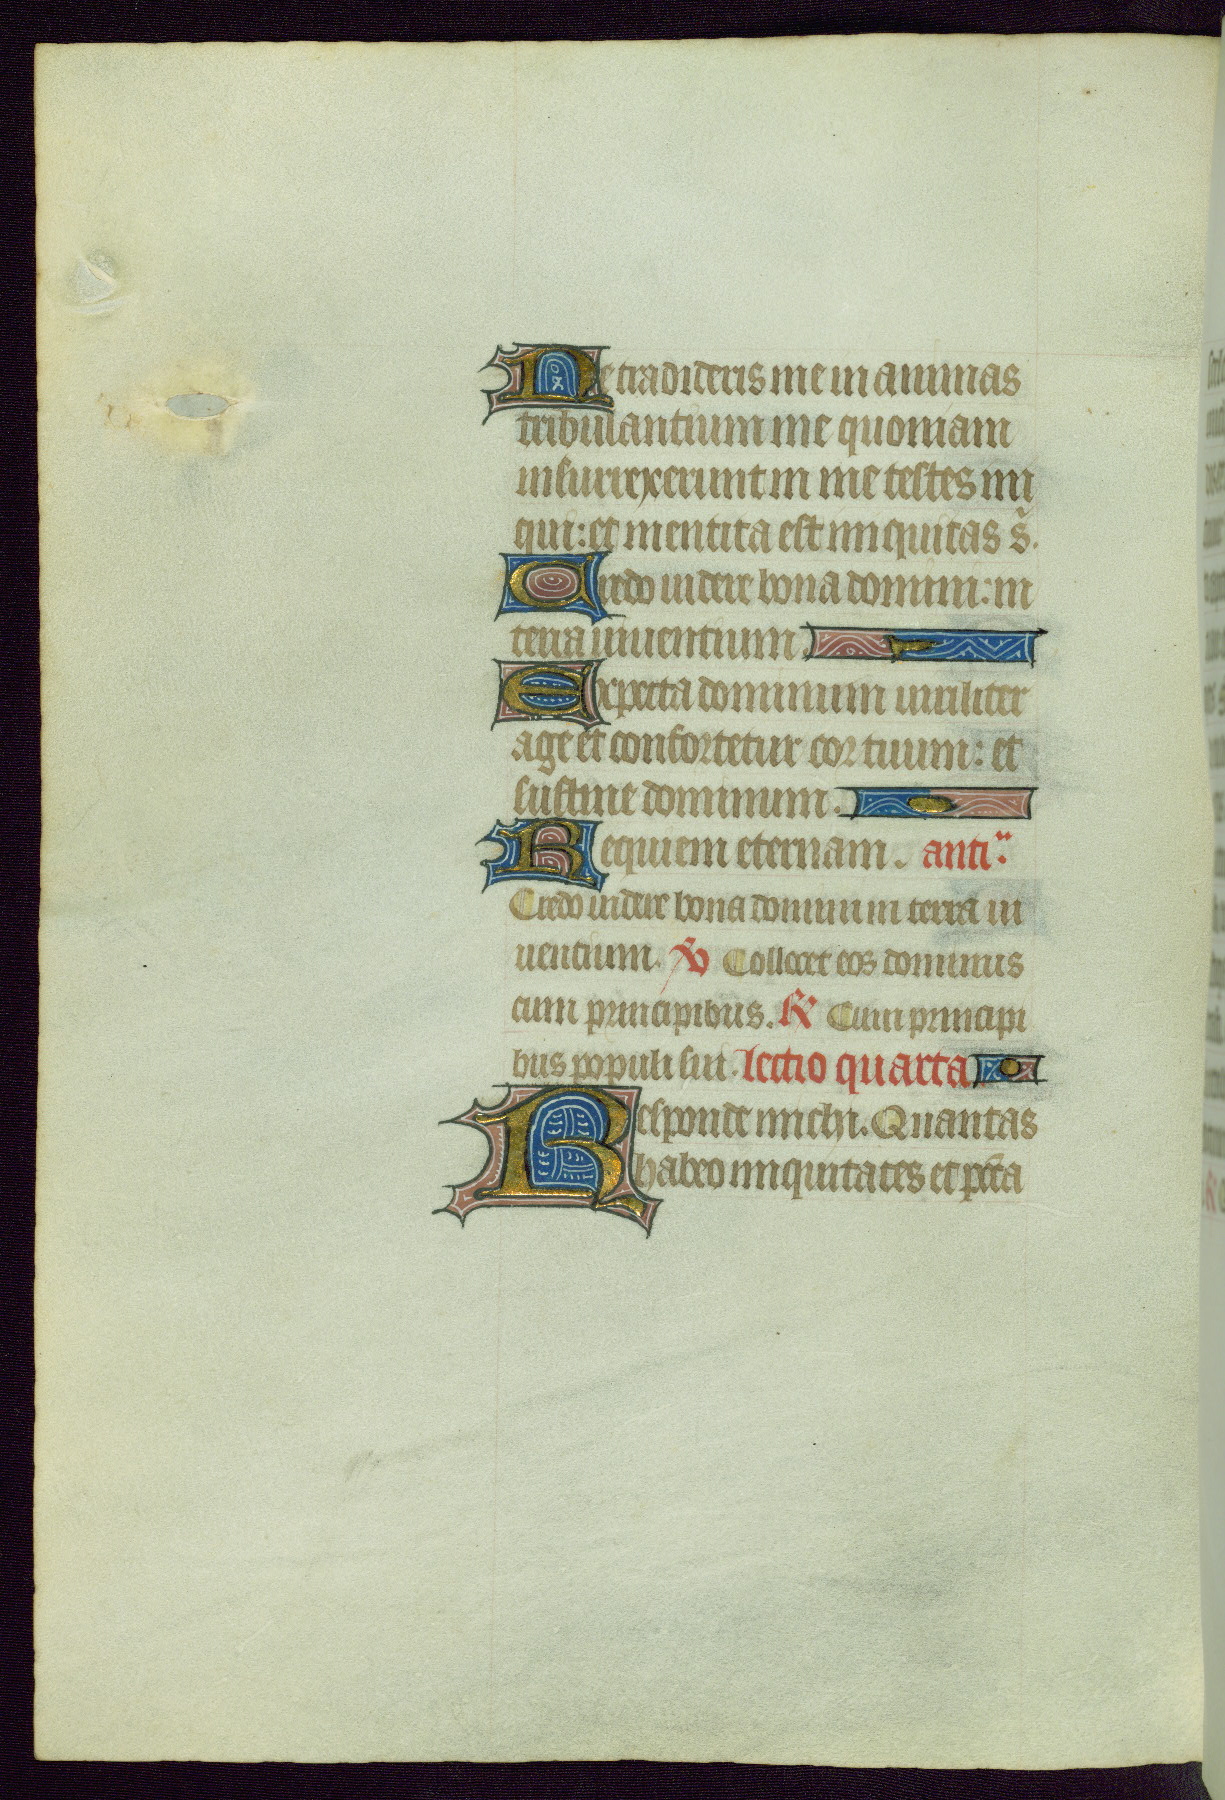 Ne tradideris me in animas
tribulantium me quoniam
insurrexerunt in me testes ini
qui: et mentita est iniquitas s̃.
Credo uidere bona domini: in
terra uiuentium.
Expecta dominum uiriliter
age et confortetur cor tuum: et
sustine dominum.
Requiem eternam. anti.
Credo uidere bona domini in terra ui
uentium. ℣ Collocet eos dominus
cum principibus. ℟ Cum principi
bus populi sui. lectio quarta
Responde michi. Quantas
habeo iniquitates et pc̄ta